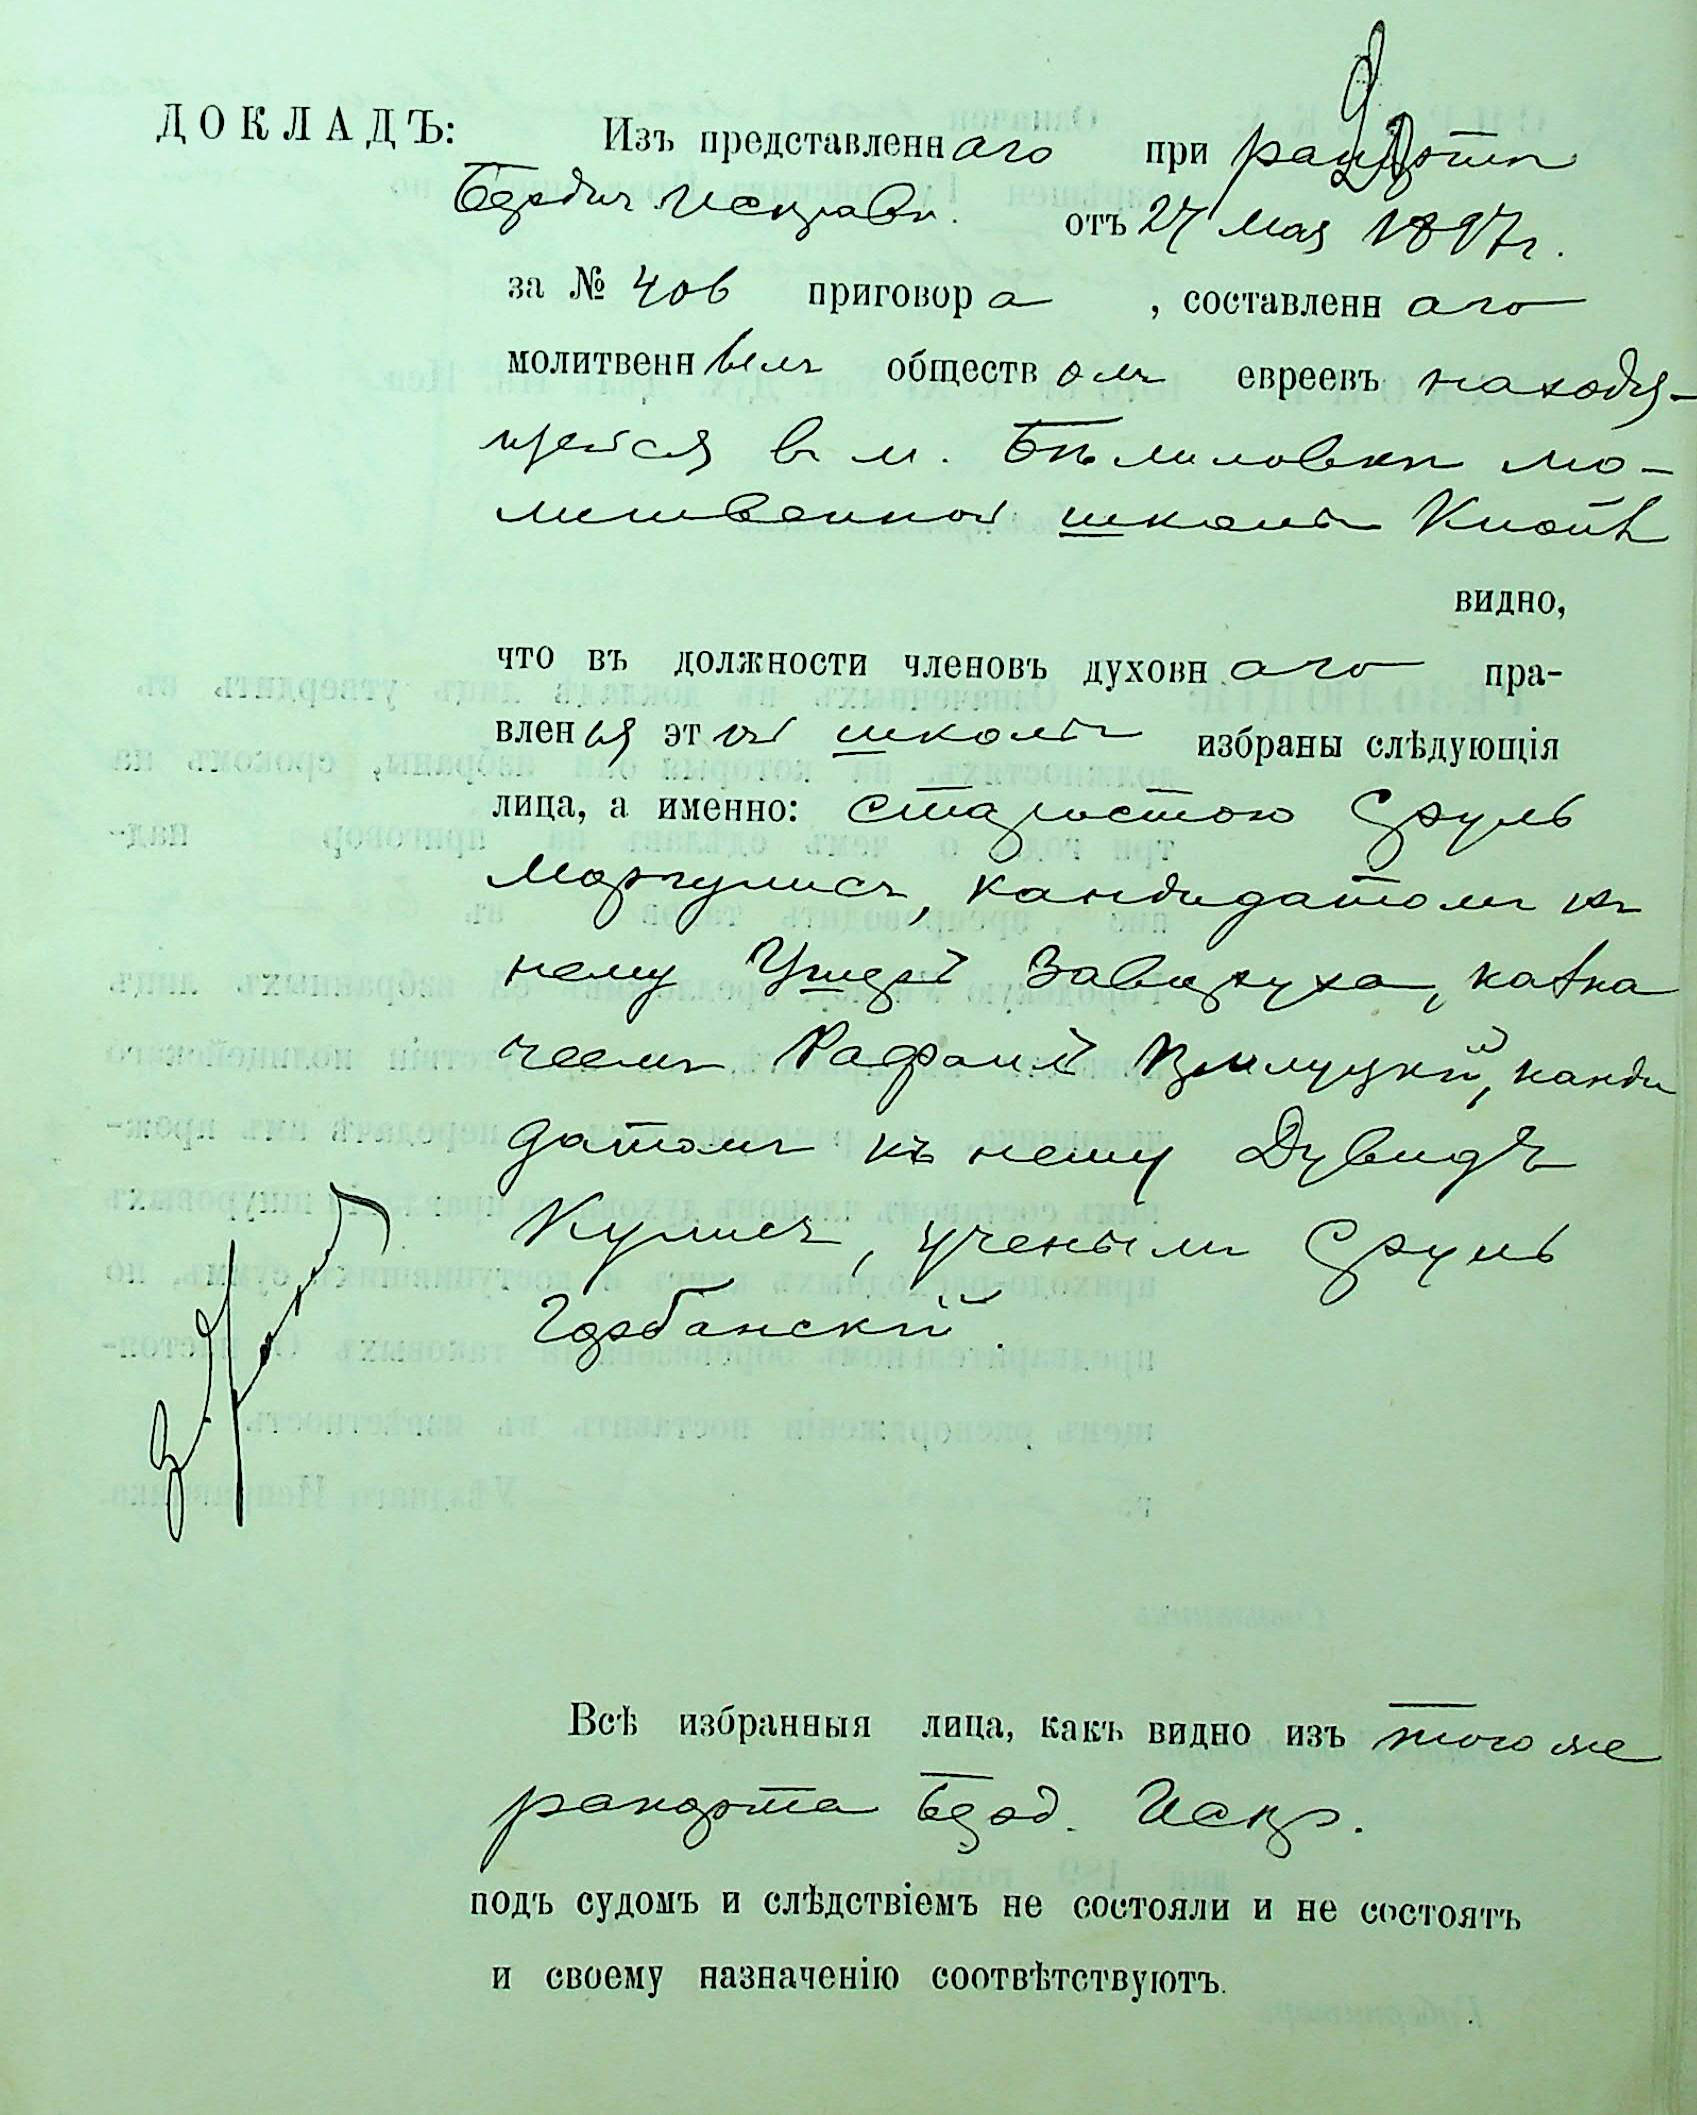 ДОКЛАДЪ: Изъ представленнаго при рапортѣ
Бердич. Исправн. отъ 27 мая 1897 г.
за № 406 приговора, составленнаго
молитвеннымъ обществомъ евреевъ находя-
щейся в м. Бѣлиловкѣ мо-
литвенной школы Клойзъ
видно,
что въ должности членовъ духовнаго пра-
вленія этой школы избраны слѣдующія
лица, а именно: старостою Сруль
Моргулисъ, кандидатомъ къ
нему Ушеръ Завируха, казна
чеемъ Рафаилъ, канди
датомъ къ нему Дувидъ
Кулисъ, ученымъ Сруль
Горбанскій.
Всѣ избранныя лица, какъ видно изъ того же
рапорта Берд. Испр.
подъ судомъ и слѣдствіемъ не состояли и не состоятъ
и своему назначенію соотвѣтствуютъ.